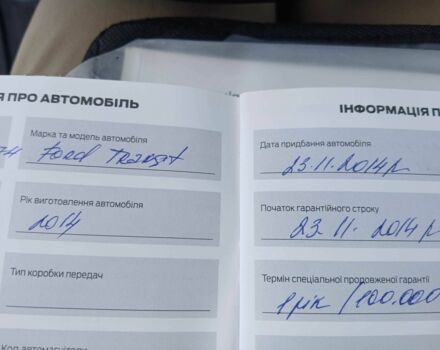 Я ПРО АВТОМОБІЛЬ
Марка та модель автомобіля
Ford Transit
Рік виготовлення автомобіля
2014
Тип коробки передач
Код автомагнітоли
ІНФОРМАЦІЯ П
Дата придбання автомобіля
23.11.2014р
Початок гарантійного строку
23.11.2014р
Термін спеціальної продовженої гарантії
1 рік / 100.000